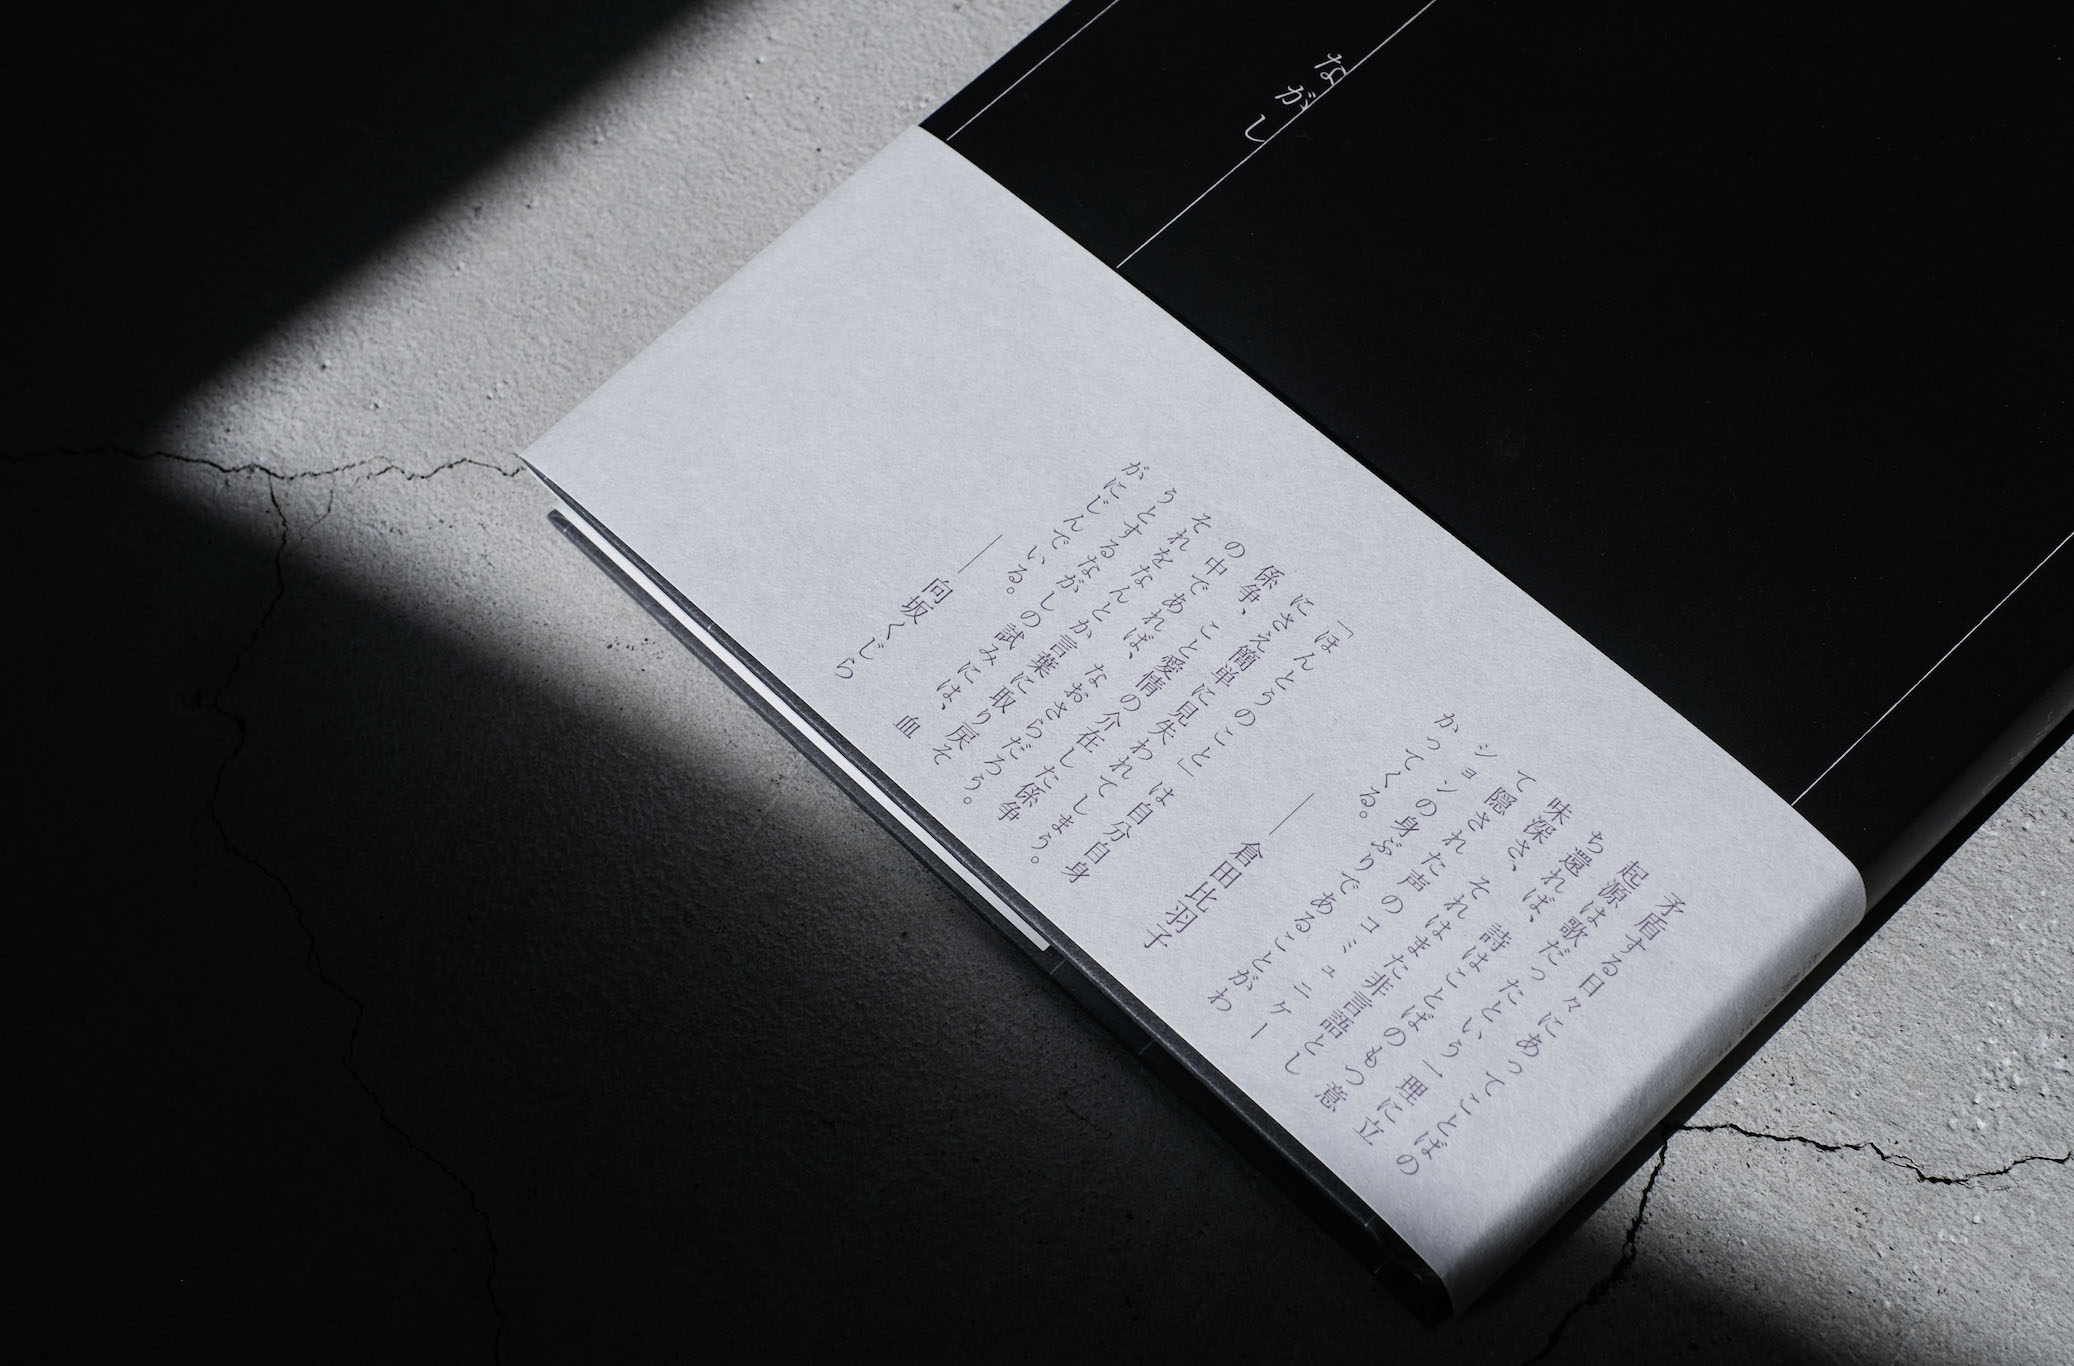 ながし
矛盾する日々にあってことばの
起源は歌だったという一理に立
ち還れば、詩はことばのもつ意
味深さ、それはまた非言語とし
て隠された声のコミュニケー
ションの身ぶりであることがわ
かってくる。
―倉田比羽子
「ほんとうのこと」は自分自身
にさえ簡単に見失われてしまう。
係争、こと愛情の介在した係争
の中であれば、なおさらだろう。
それをなんとか言葉に取り戻そ
うとするながしの試みには、血
がにじんでいる。
―向坂くじら